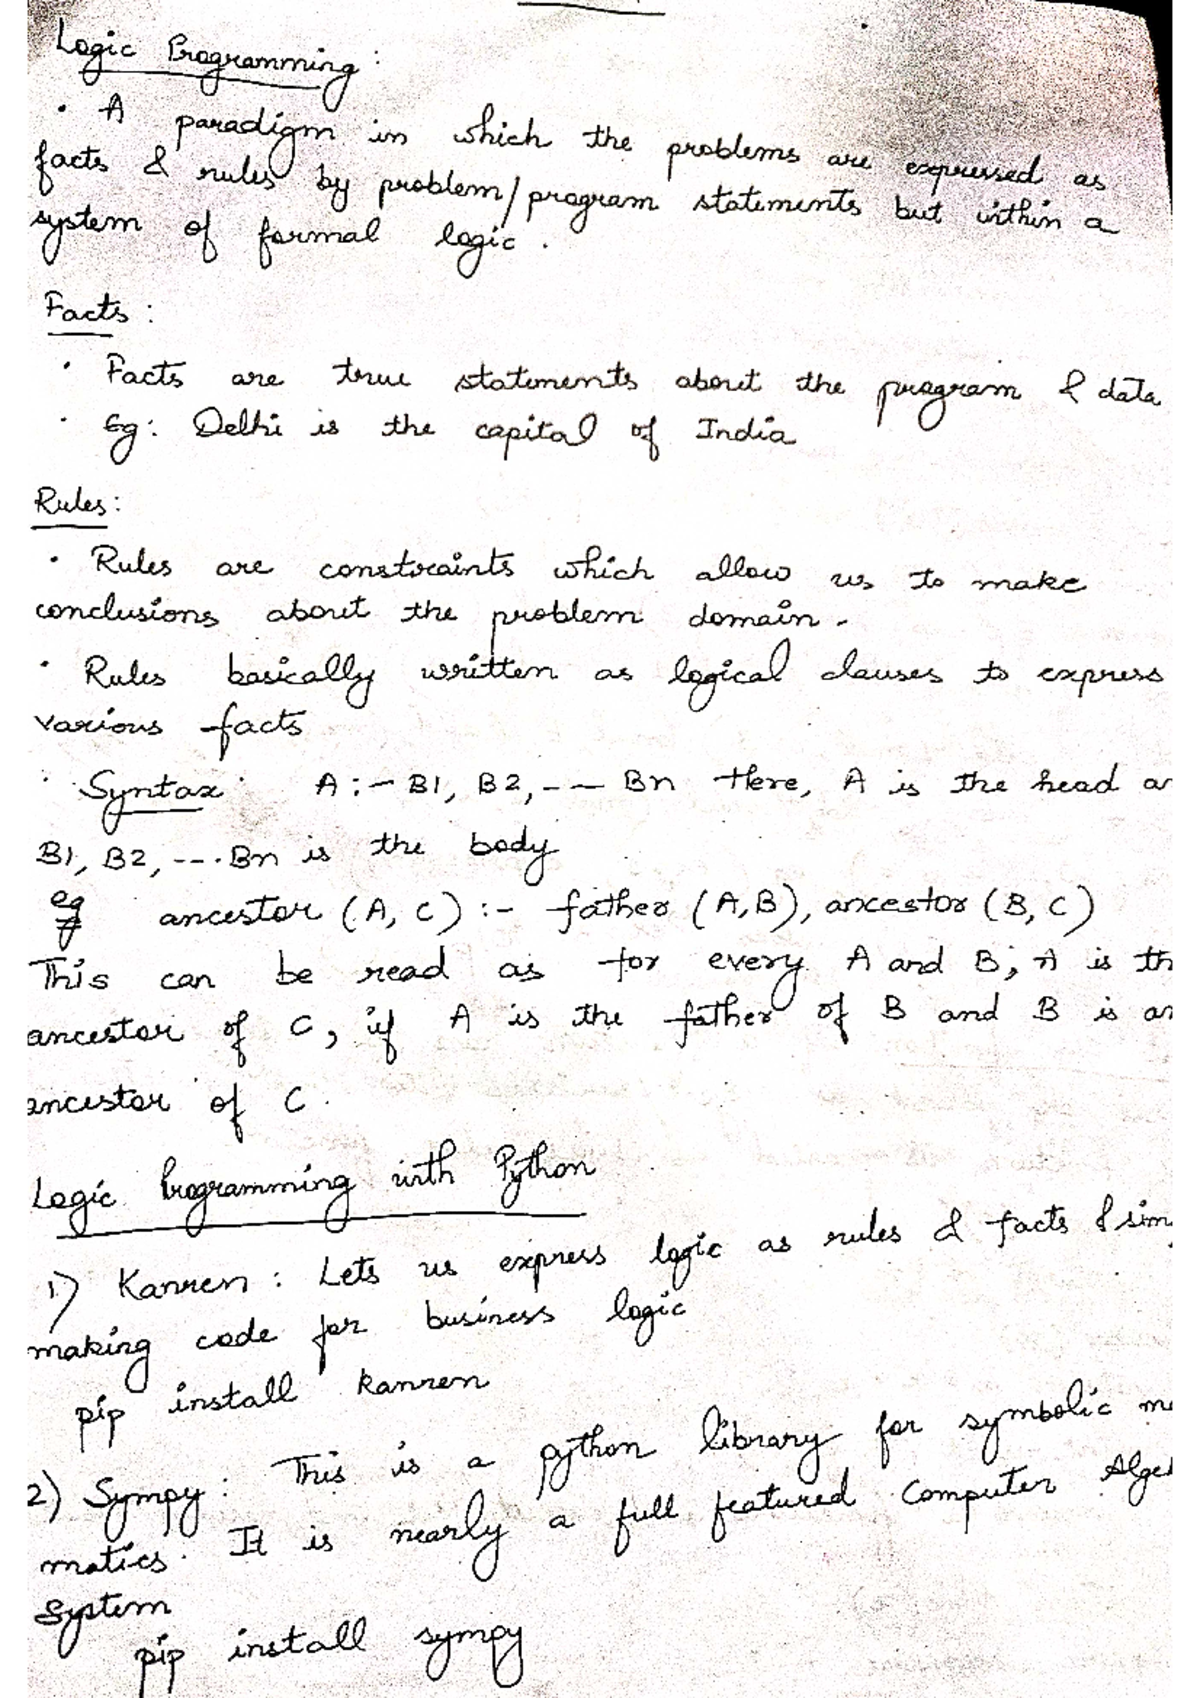 Logic Programming:
• A paradigm in which the problems are expressed as
facts & rules by problem/program statements but within a
system of formal logic.
Facts:
• Facts are true statements about the program & data
• Eg: Delhi is the capital of India
Rules:
• Rules are constraints which allow us to make
conclusions about the problem domain.
• Rules basically written as logical clauses to express
various facts
• Syntax: A:- B1, B2, --- Bn Here, A is the head an
B1, B2, ---. Bn is the body
eg ancestor (A, C) :- father (A,B), ancestor (B, C)
This can be read as for every A and B, A is th
ancestor of C, if A is the father of B and B is an
ancestor of C.
Logic Programming with Python
1.) Kanren: Lets us express logic as rules & facts & sim
making code for business logic
pip install kanren
2) Sympy: This is a python library for symbolic ma
matics. It is nearly a full featured Computer Alge
System
pip install sympy